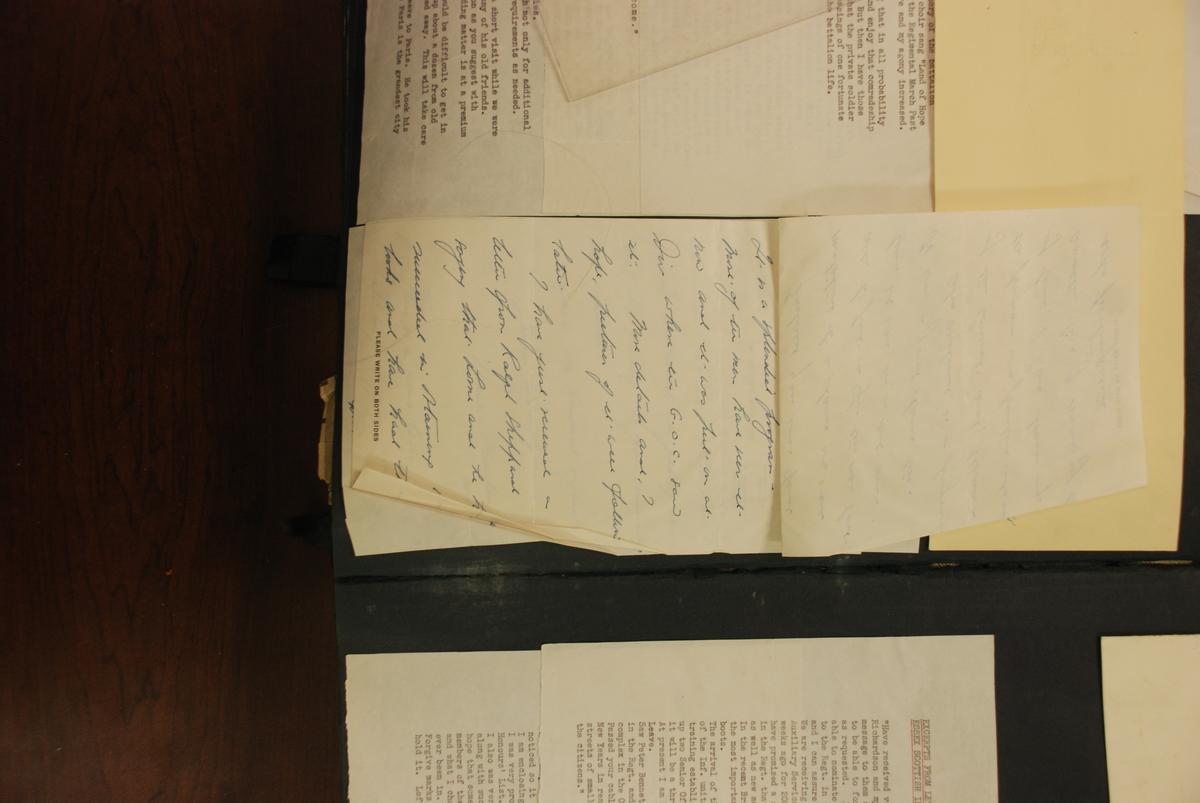 ory of the battalion
choir sang "Land of Hope
the Regimental March Past
e and my agony increased.
that in all probability
nd enjoy that comradeship
But then I have those
hat the private soldier
spings of one fortunate
he battalion life.
ome."
h not only for additional
equirements as needed.
short visit while we were
ny of his old friends.
on as you suggest with
ding matter is at a premium
ould be difficult to get in
up about a dozen from old
ed away. This will take care
eave to Paris. He took his
Paris is the grandest city
It is a splendid program -
None of the men have seen it
now and it was put on at
Div where the G.O.C. saw
it. More details and, I
hope, pictures of it will follow
later.
I have just received a
letter from Ralph Sheppard
saying that home and he
succeeded in obtaining
books and has had to
PLEASE WRITE ON BOTH SIDES
EXCERPTS FROM LE
ESSEX SCOTTISH
"Have received
Richardson and m
message to them
to be able to fo
as requested.
able to nominate
to the Regt. in
and I can assure
We are receiving
Auxiliary Service
weeks ago for 200
have promised a
in the Regt. tha
as well as new
In the recent Br
the most importa
boots.
The arrival of t
of the Inf. unit
training establi
up two Senior Of
it will be a
At present I am
Leave.
Saw Peter Bennet
in the Regt. and
complex in the
Passed your cabl
New Years in res
streets of small
the citizens."
noticed so it
I am enclosing
I was very pro
Honours List.
I also was ver
along with suc
hope that some
members of the
and what I cho
ever been in.
Forgive marks
hold it. Lef